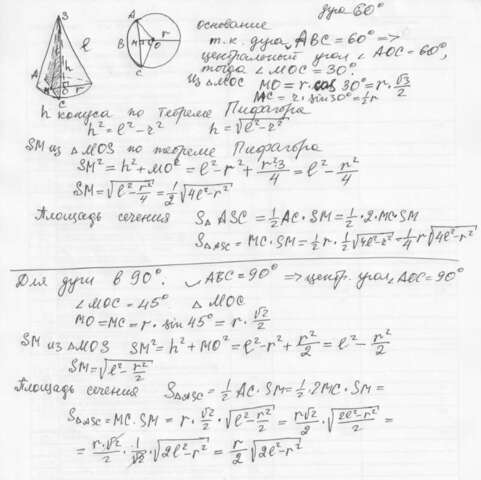 дуга 60°
основание
т.к. дуга ◡ABC = 60° =>
центральный угол ∠AOC = 60°,
тогда ∠MOC = 30°.
Из △MOC MO = r·cos 30° = r·√3/2
MC = r·sin30° = ½r
S
l
h
A
M
O
r
C
A
B
M
O
r
C
h конуса по теореме Пифагора
h² = l² - r² h = √(l² - r²)
SM из △MOS по теореме Пифагора
SM² = h² + MO² = l² - r² + r²3/4 = l² - r²/4
SM = √(l² - r²/4) = 1/2 √(4l² - r²)
Площадь сечения S△ASC = ½AC·SM = ½·2·MC·SM
S△ASC = MC·SM = ½r·½√(4l² - r²) = ¼r√(4l² - r²)
Для дуги в 90°. ◡ABC = 90° => центр. угол ∠AOC = 90°
∠MOC = 45° △MOC
MO = MC = r·sin 45° = r·√2/2
SM из △MOS SM² = h² + MO² = l² - r² + r²/2 = l² - r²/2
SM = √(l² - r²/2)
Площадь сечения S△ASC = ½ AC·SM = ½·2MC·SM =
S△ASC = MC·SM = r·√2/2·√(l² - r²/2) = r√2/2·√((2l² - r²)/2) =
= r·√2/2·1/√2·√(2l² - r²) = r/2 √(2l² - r²)